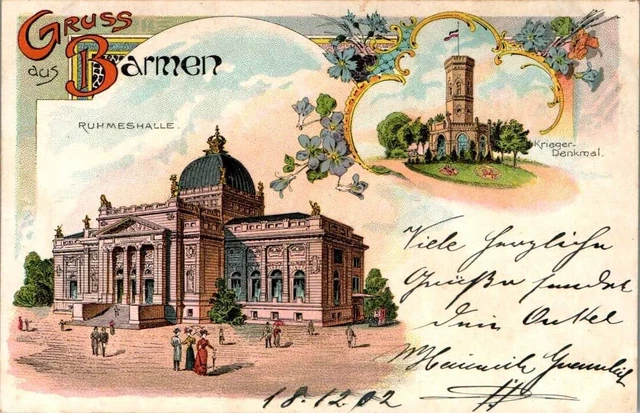 Gruss
aus Barmen
RUHMESHALLE.
Krieger-
Denkmal.
Viele herzliche
Grüße sendet
dein Onkel
Heinrich
18.12.02